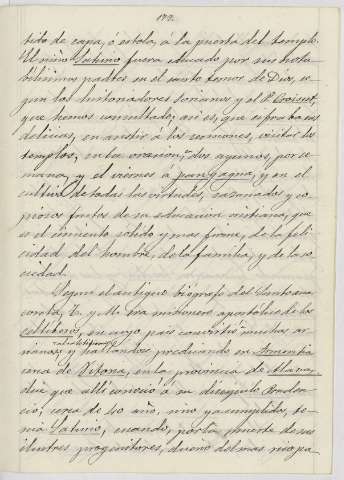 172.
tido de capa, ó estola, á la puerta del templo.
El niño Saturio fuera educado por sus nota
bilísimos padres en el santo temor de Dios, se
gun los historiadores sorianos y el P. Croisset,
que hemos consultado; así es, que cifraba sus
delicias, en asistir á los sermones, visitar los
templos, en la oracion, y dos ayunos, por se
mana, y el viernes á pan y agua, y en el
cultivo de todas las virtudes, sazonados y co
piosos frutos de su educacion cristiana, que
es el cimiento sólido y mas firme, de la feli
cidad del hombre, de la familia, y de la so
ciedad.
Segun el antiguo biógrafo del Santo
conta, C. y M. era misionero apostólico de los
celtíberos, en cuyo pais convirtió muchos ar
rianos y hallandose predicando en Armentia
cerca de Vitoria, en la provincia de Alava,
dice que allí conoció á su discípulo Pruden
cio, cerca de 40 años, niño ya cumplidos, te
nia Saturio, cuando, por la muerte de sus
ilustres progenitores, dueño del mas rico pa